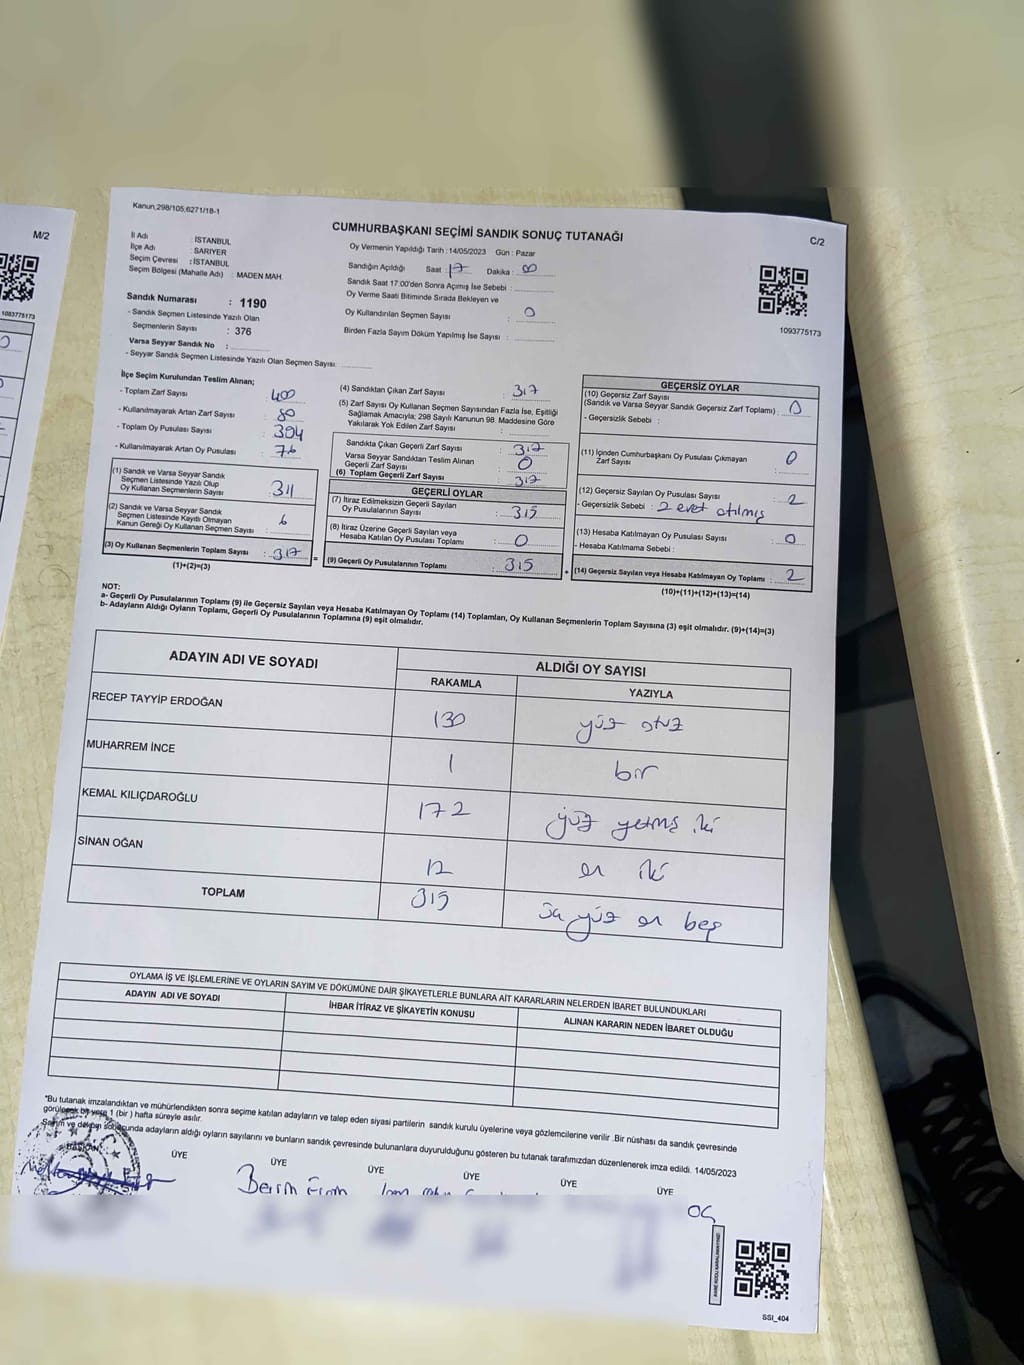 M/2
1083775173
Kanun,298/105;6271/18-1
C/2
CUMHURBAŞKANI SEÇİMİ SANDIK SONUÇ TUTANAĞI
1093775173
İl Adı : İSTANBUL
İlçe Adı : SARIYER
Seçim Çevresi : İSTANBUL
Seçim Bölgesi (Mahalle Adı) : MADEN MAH.
Sandık Numarası : 1190
- Sandık Seçmen Listesinde Yazılı Olan
Seçmenlerin Sayısı : 376
Varsa Seyyar Sandık No :
- Seyyar Sandık Seçmen Listesinde Yazılı Olan Seçmen Sayısı:
Oy Vermenin Yapıldığı Tarih : 14/05/2023 Gün : Pazar
Sandığın Açıldığı Saat : 17 Dakika : 00
Sandık Saat 17:00'den Sonra Açımış İse Sebebi :
Oy Verme Saati Bitiminde Sırada Bekleyen ve
Oy Kullandırılan Seçmen Sayısı : 0
Birden Fazla Sayım Döküm Yapılmış İse Sayısı :
İlçe Seçim Kurulundan Teslim Alınan;
- Toplam Zarf Sayısı : 400
- Kullanılmayarak Artan Zarf Sayısı : 80
- Toplam Oy Pusulası Sayısı : 394
- Kullanılmayarak Artan Oy Pusulası : 76
(1) Sandık ve Varsa Seyyar Sandık
Seçmen Listesinde Yazılı Olup
Oy Kullanan Seçmenlerin Sayısı : 311
(2) Sandık ve Varsa Seyyar Sandık
Seçmen Listesinde Kayıtlı Olmayan
Kanun Gereği Oy Kullanan Seçmen Sayısı : 6
(3) Oy Kullanan Seçmenlerin Toplam Sayısı : 317 =
(1)+(2)=(3)
(4) Sandıktan Çıkan Zarf Sayısı : 317
(5) Zarf Sayısı Oy Kullanan Seçmen Sayısından Fazla İse, Eşitliği
Sağlamak Amacıyla; 298 Sayılı Kanunun 98. Maddesine Göre
Yakılarak Yok Edilen Zarf Sayısı :
Sandıkta Çıkan Geçerli Zarf Sayısı : 317
Varsa Seyyar Sandıktan Teslim Alınan
Geçerli Zarf Sayısı : 0
(6) Toplam Geçerli Zarf Sayısı : 317
GEÇERLİ OYLAR
(7) İtiraz Edilmeksizin Geçerli Sayılan
Oy Pusulalarının Sayısı : 315
(8) İtiraz Üzerine Geçerli Sayılan veya
Hesaba Katılan Oy Pusulası Toplamı : 0
(9) Geçerli Oy Pusulalarının Toplamı : 315 +
GEÇERSİZ OYLAR
(10) Geçersiz Zarf Sayısı
(Sandık ve Varsa Seyyar Sandık Geçersiz Zarf Toplamı) : 0
- Geçersizlik Sebebi :
(11) İçinden Cumhurbaşkanı Oy Pusulası Çıkmayan
Zarf Sayısı : 0
(12) Geçersiz Sayılan Oy Pusulası Sayısı : 2
- Geçersizlik Sebebi : 2 evet atılmış
(13) Hesaba Katılmayan Oy Pusulası Sayısı : 0
- Hesaba Katılmama Sebebi :
(14) Geçersiz Sayılan veya Hesaba Katılmayan Oy Toplamı : 2
(10)+(11)+(12)+(13)=(14)
NOT:
a- Geçerli Oy Pusulalarının Toplamı (9) ile Geçersiz Sayılan veya Hesaba Katılmayan Oy Toplamı (14) Toplamları, Oy Kullanan Seçmenlerin Toplam Sayısına (3) eşit olmalıdır. (9)+(14)=(3)
b- Adayların Aldığı Oyların Toplamı, Geçerli Oy Pusulalarının Toplamına (9) eşit olmalıdır.
ADAYIN ADI VE SOYADI
ALDIĞI OY SAYISI
RAKAMLA YAZIYLA
RECEP TAYYİP ERDOĞAN 130 yüz otuz
MUHARREM İNCE 1 bir
KEMAL KILIÇDAROĞLU 172 yüz yetmiş iki
SİNAN OĞAN 12 on iki
TOPLAM 315 üç yüz on beş
OYLAMA İŞ VE İŞLEMLERİNE VE OYLARIN SAYIM VE DÖKÜMÜNE DAİR ŞİKAYETLERLE BUNLARA AİT KARARLARIN NELERDEN İBARET BULUNDUKLARI
ADAYIN ADI VE SOYADI İHBAR İTİRAZ VE ŞİKAYETİN KONUSU ALINAN KARARIN NEDEN İBARET OLDUĞU
*Bu tutanak imzalandıktan ve mühürlendikten sonra seçime katılan adayların ve talep eden siyasi partilerin sandık kurulu üyelerine veya gözlemcilerine verilir .Bir nüshası da sandık çevresinde
görülecek bir yere 1 (bir ) hafta süreyle asılır.
Sayım ve döküm sonucunda adayların aldığı oyların sayılarını ve bunların sandık çevresinde bulunanlara duyurulduğunu gösteren bu tutanak tarafımızdan düzenlenerek imza edildi. 14/05/2023
BAŞKAN ÜYE ÜYE ÜYE ÜYE ÜYE ÜYE
SSI_404